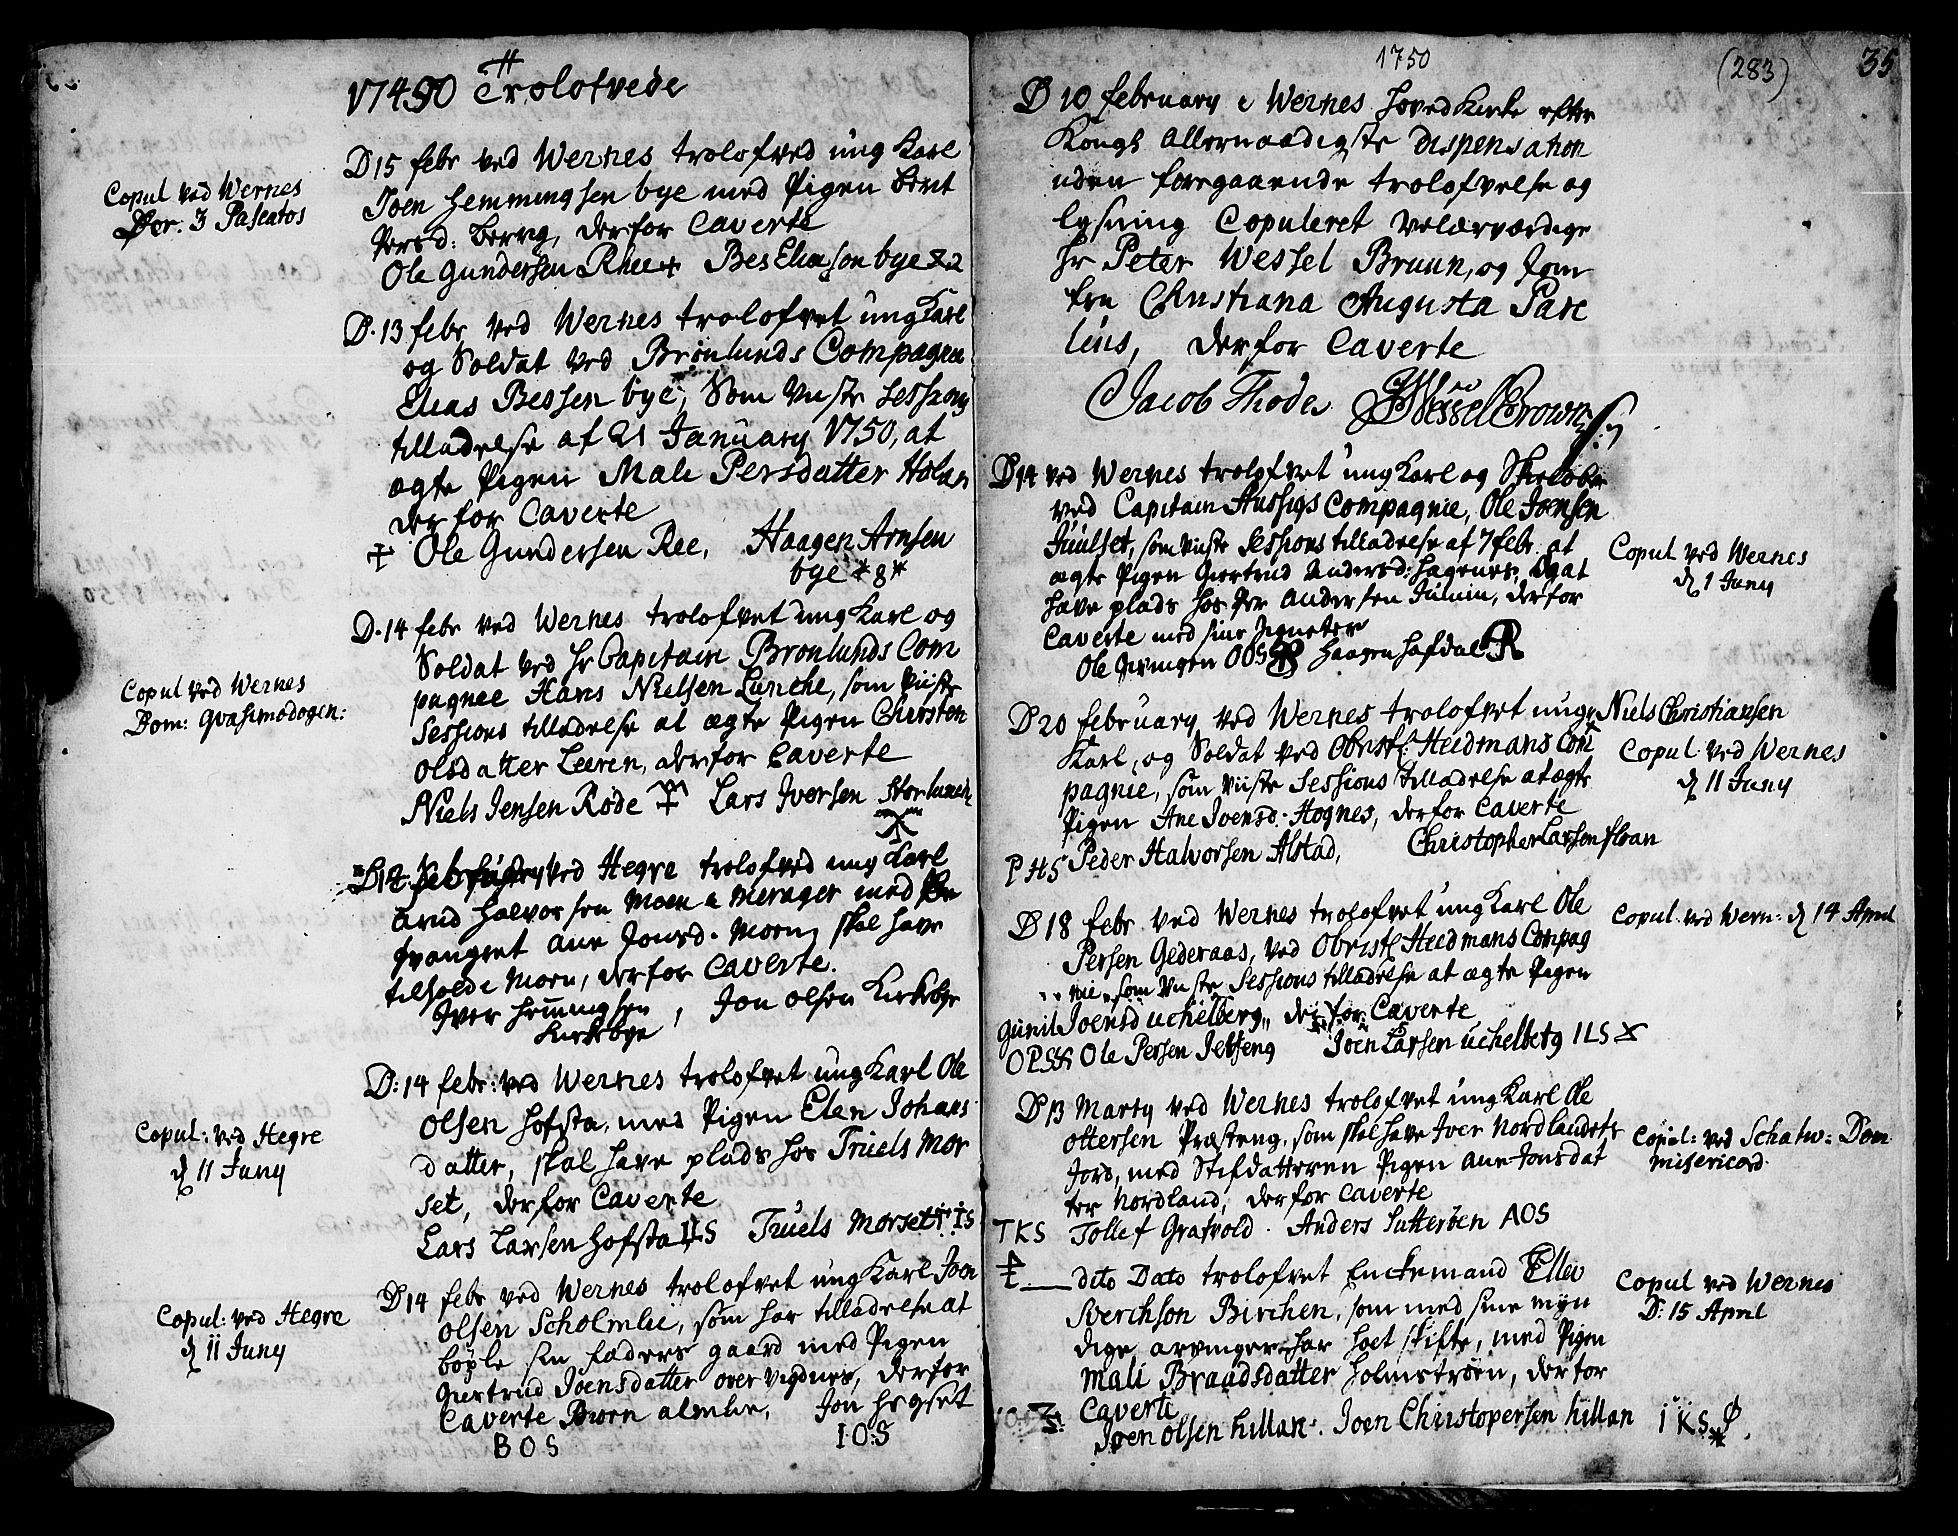 17450 Trolofvede
D 15 febr ved Wernes trolofved ung Karl
Joen Hemmingsen bye med Pigen Berit
Persd: Berrg, derfor Caverte
Ole Gundersen Rhee Bes Eliasson bye
Copul ved Wernes
Fer. 3 Pascatos
D. 13 febr ved Wernes trolofvet ung Karl
og Soldat ved Brønlunds Compagnie
Elias Bessen bye, som viiste Sessions
tilladelse af 21 January 1750, at
ægte Pigen Mali Persdatter Holan
derfor Caverte
Ole Gundersen Ree, Haagen Arnsen
bye *8*
D. 14 febr ved Wernes trolofvet ung Karl og
Soldat ved Hr Capitain Brønlunds Com
pagnie Hans Nielsen Lunche, som viiste
Sessions tilladelse at ægte Pigen Chirsten
Olsdatter Leeren, derfor Caverte
Niels Jensen Røde Lars Iversen Storlunch
Copul ved Wernes
Dom: Qvasimodogen:
ved Hegre trolofved ung Karl
Arnd Halvorsen Moen Merager med
qvangret Ane Jonsd. Moen, skal have
tilholde Moen, derfor Caverte.
Iver Hemingsen, Jon Olsen Kirkebye
Kirkebye
D: 14 febr: ved Wernes trolofvet ung Karl Ole
Olsen Hofsta, med Pigen Elen Johans
datter, skal have plads hos Truels Mor
set, derfor Caverte
Lars Larsen Hofsta LLS Truels Morset TIS
Copul: ved Hegre
d 11 Juny
D 14 febr ved Wernes trolofvet ung Karl Joen
Olsen Scholmlie, som har tilladelse at
bøxle sin faders gaard med Pigen
Giertrud Joensdatter over vigdnes, derfor
Caverte Biørn Almlie, Jon Hegset
BOS IOS
Copul: ved Hegre
d 11 Juny
1750 (283) 35
D 10 february i Wernes Hoved Kirke efter
Kongl Allernaadigste Dispensation
uden foregaaende trolofvelse og
lysning Copuleret Velærværdige
Hr Peter Wessel Bruun, og Jom
fru Christiana Augusta Pare
lius, derfor Caverte
Jacob Thode. Wessel Brown
D 14 ved Wernes trolofvet ung Karl og Skieløber
ved Capitain Hussigs Compagnie, Ole Joensen
Juulset, som viiste Sessions tilladelse af 7 febr. at
ægte Pigen Giertrud Andersd: Hagenes, Og at
have plads hos Per Andersen Julum, derfor
Caverte med sine Zigneter
Ole Givingen OOS Haagen Hofdal R
Copul ved Wernes
d 1 Juny
D 20 february ved Wernes trolofvet ung Niels Christiansen
Karl, og Soldat ved Obristl: Heidmans Com
pagnie, som viiste Sessions tilladelse at ægte
Pigen Ane Joensd. Hognes, derfor Caverte
PHS Peder Halvorsen Alstad, Christopher Larsen floan
Copul ved Wernes
d 11 Juny
D 18 febr ved Wernes trolofvet ung Karl Ole
Persen Gederaas, ved Obristl Heidmans Compag
nie som viiste Sessions tilladelse at ægte Pigen
Gunil Joensd uchelberg, derfor Caverte
OPS Ole Persen Iebseng Joen Larsen uchelberg ILS
Copul. ved Wern: d 14 April
D 13 Marty ved Wernes trolofvet ung Karl Ole
Ottersen Præsteng, som skal have Iver Nordlandets
jord, med Stifdatteren Pigen Ane Jonsdat
ter Nordland, derfor Caverte
TKS Tollef Gratvold. Anders Sutterøen AOS
Copul: ved Schatw: Dom
Misericord.
dito Dato trolofvet Enckemand Ellev
Sverchson Birchen, som med sine myn
dige arvinger har hoet skifte, med Pigen
Mali Braadsdatter Holmstrøen, derfor
Caverte
Joen Olsen Hillan. Joen Christopersen Hillan IKS
Copul ved Wernes
D: 15 April